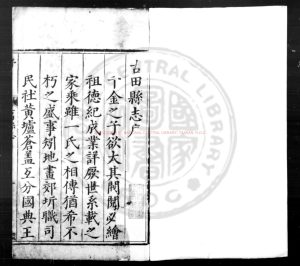 古田縣志序
千金之子欲大其閥閱必繪
祖德紀成業詳厥世系載之
家乘雖一氏之相傳猶希不
朽之盛事矧地畫郊圻職司
民社黃壚蒼蓋互分國典王
CENTRAL LIBRARY